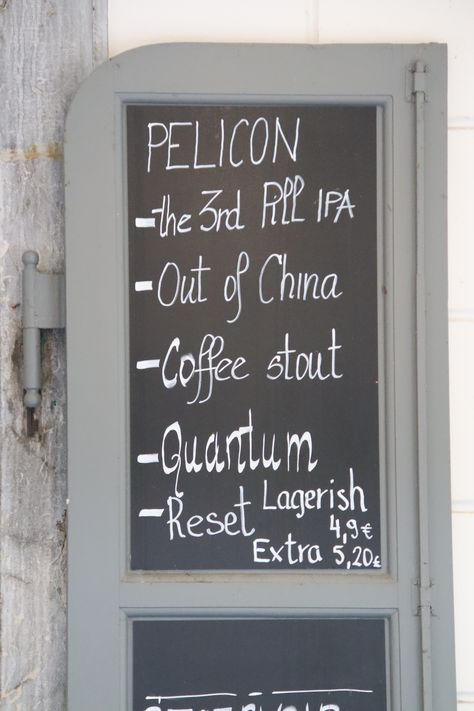 PELICON
- the 3rd Pill IPA
- Out of China
- Coffee stout
- Quantum
- Reset Lagerish
4,9€
Extra 5,20€